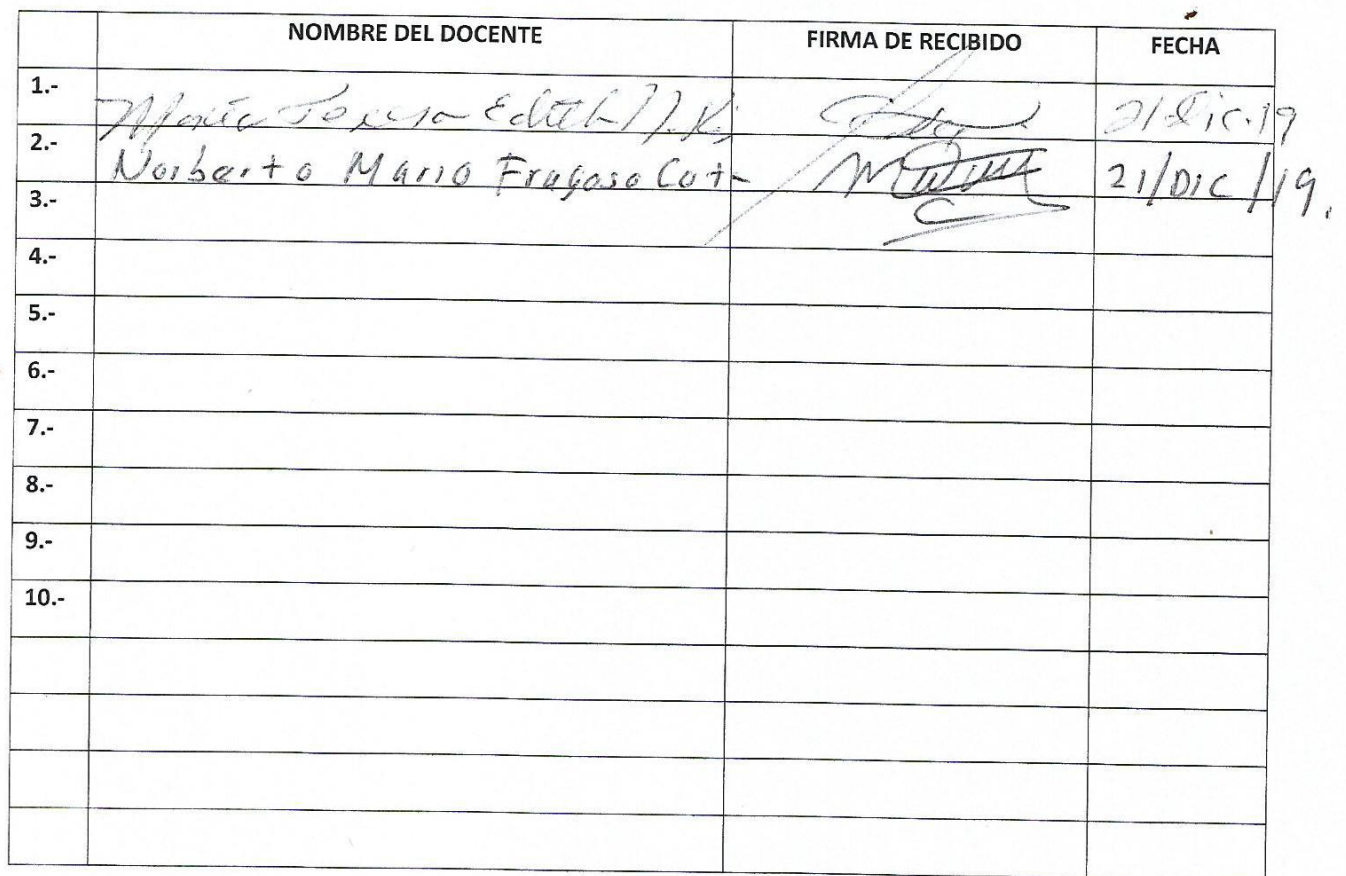 NOMBRE DEL DOCENTE FIRMA DE RECIBIDO FECHA
1.- María Teresa Edith 21 Dic. 19
2.- Norberto Mario Fragoso 21/DIC/19.
3.-
4.-
5.-
6.-
7.-
8.-
9.-
10.-